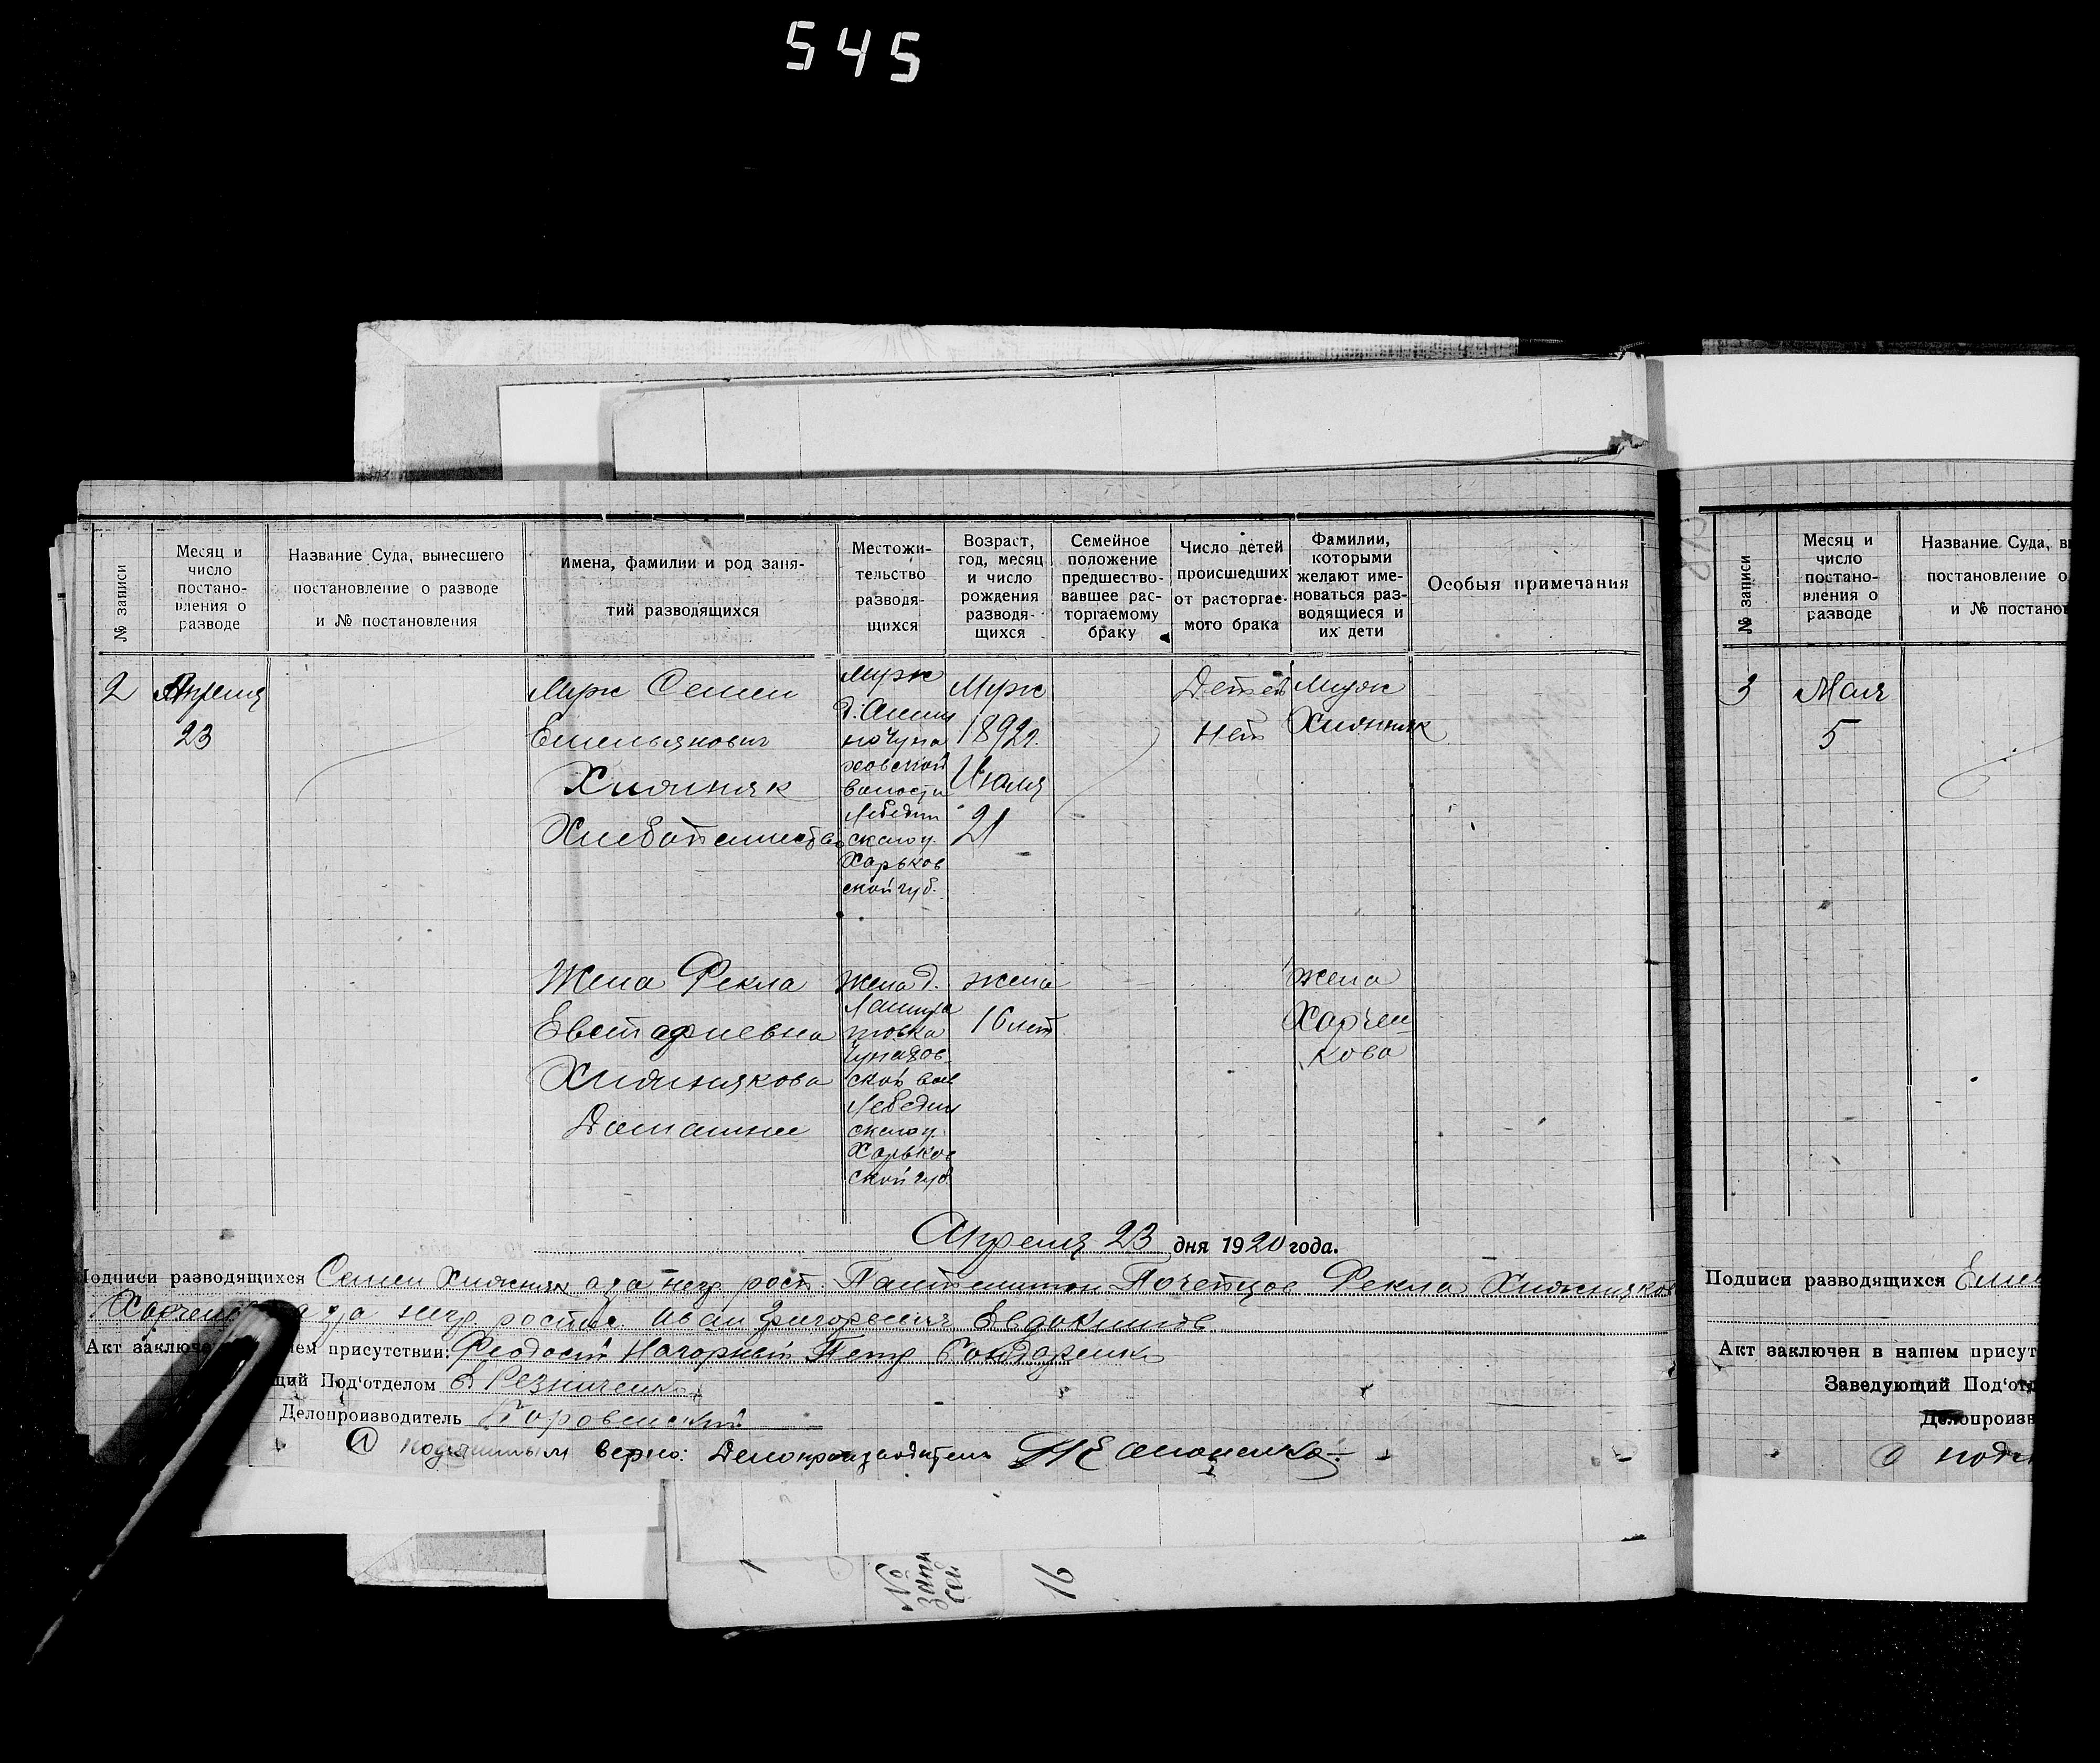 545
№ записи
Месяц и
число
постано-
вления о
разводе
Название Суда, вынесшего
постановление о разводе
и № постановления
Имена, фамилии и род заня-
тий разводящихся
Местожи-
тельство
разводя-
щихся
Возраст,
год, месяц
и число
рождения
разводя-
щихся
Семейное
положение
предшество-
вавшее рас-
торгаемому
браку
Число детей
происшедших
от расторгае-
мого брака
Фамилии,
которыми
желают име-
новаться раз-
водящиеся и
их дети
Особыя примечания
2
Апреля
23
Муж Семен
Емельянович
Хижняк
Хлебопашество
муж
волости
Лебедин
ского у.
Харьков
ской губ.
Муж
1892г.
Июля
21
Детей
нет
Муж
Хижняк
Жена Фекла
Евстафиевна
Хижнякова
Домашнее
жена д.
ской вол
Лебедин
ского у.
Харьков
ской губ.
жена
16 лет
жена
Харчен
кова
Апреля 23 дня 1920 года.
Подписи разводящихся Семен Хижняк а за негр. росп. Пантелимон Почетцов Фекла Хижняков
а за негр. Иван Григорьевич Евдокимов
Акт заключе нем присутствии: Феодосий Нагорный Петр Бондаренко
щий Под'отделом Резниченко
Делопроизводитель Боровенский
С подлинным верно: Делопроизводитель
№ записи
Месяц и
число
постано-
вления о
разводе
Название Суда, вы
постановление о
и № постанов
3
Мая
5
Подписи разводящихся Емел
Акт заключен в нашем присут
Заведующий Под'отд
Делопроизв
С подл
№
запи
сей
16